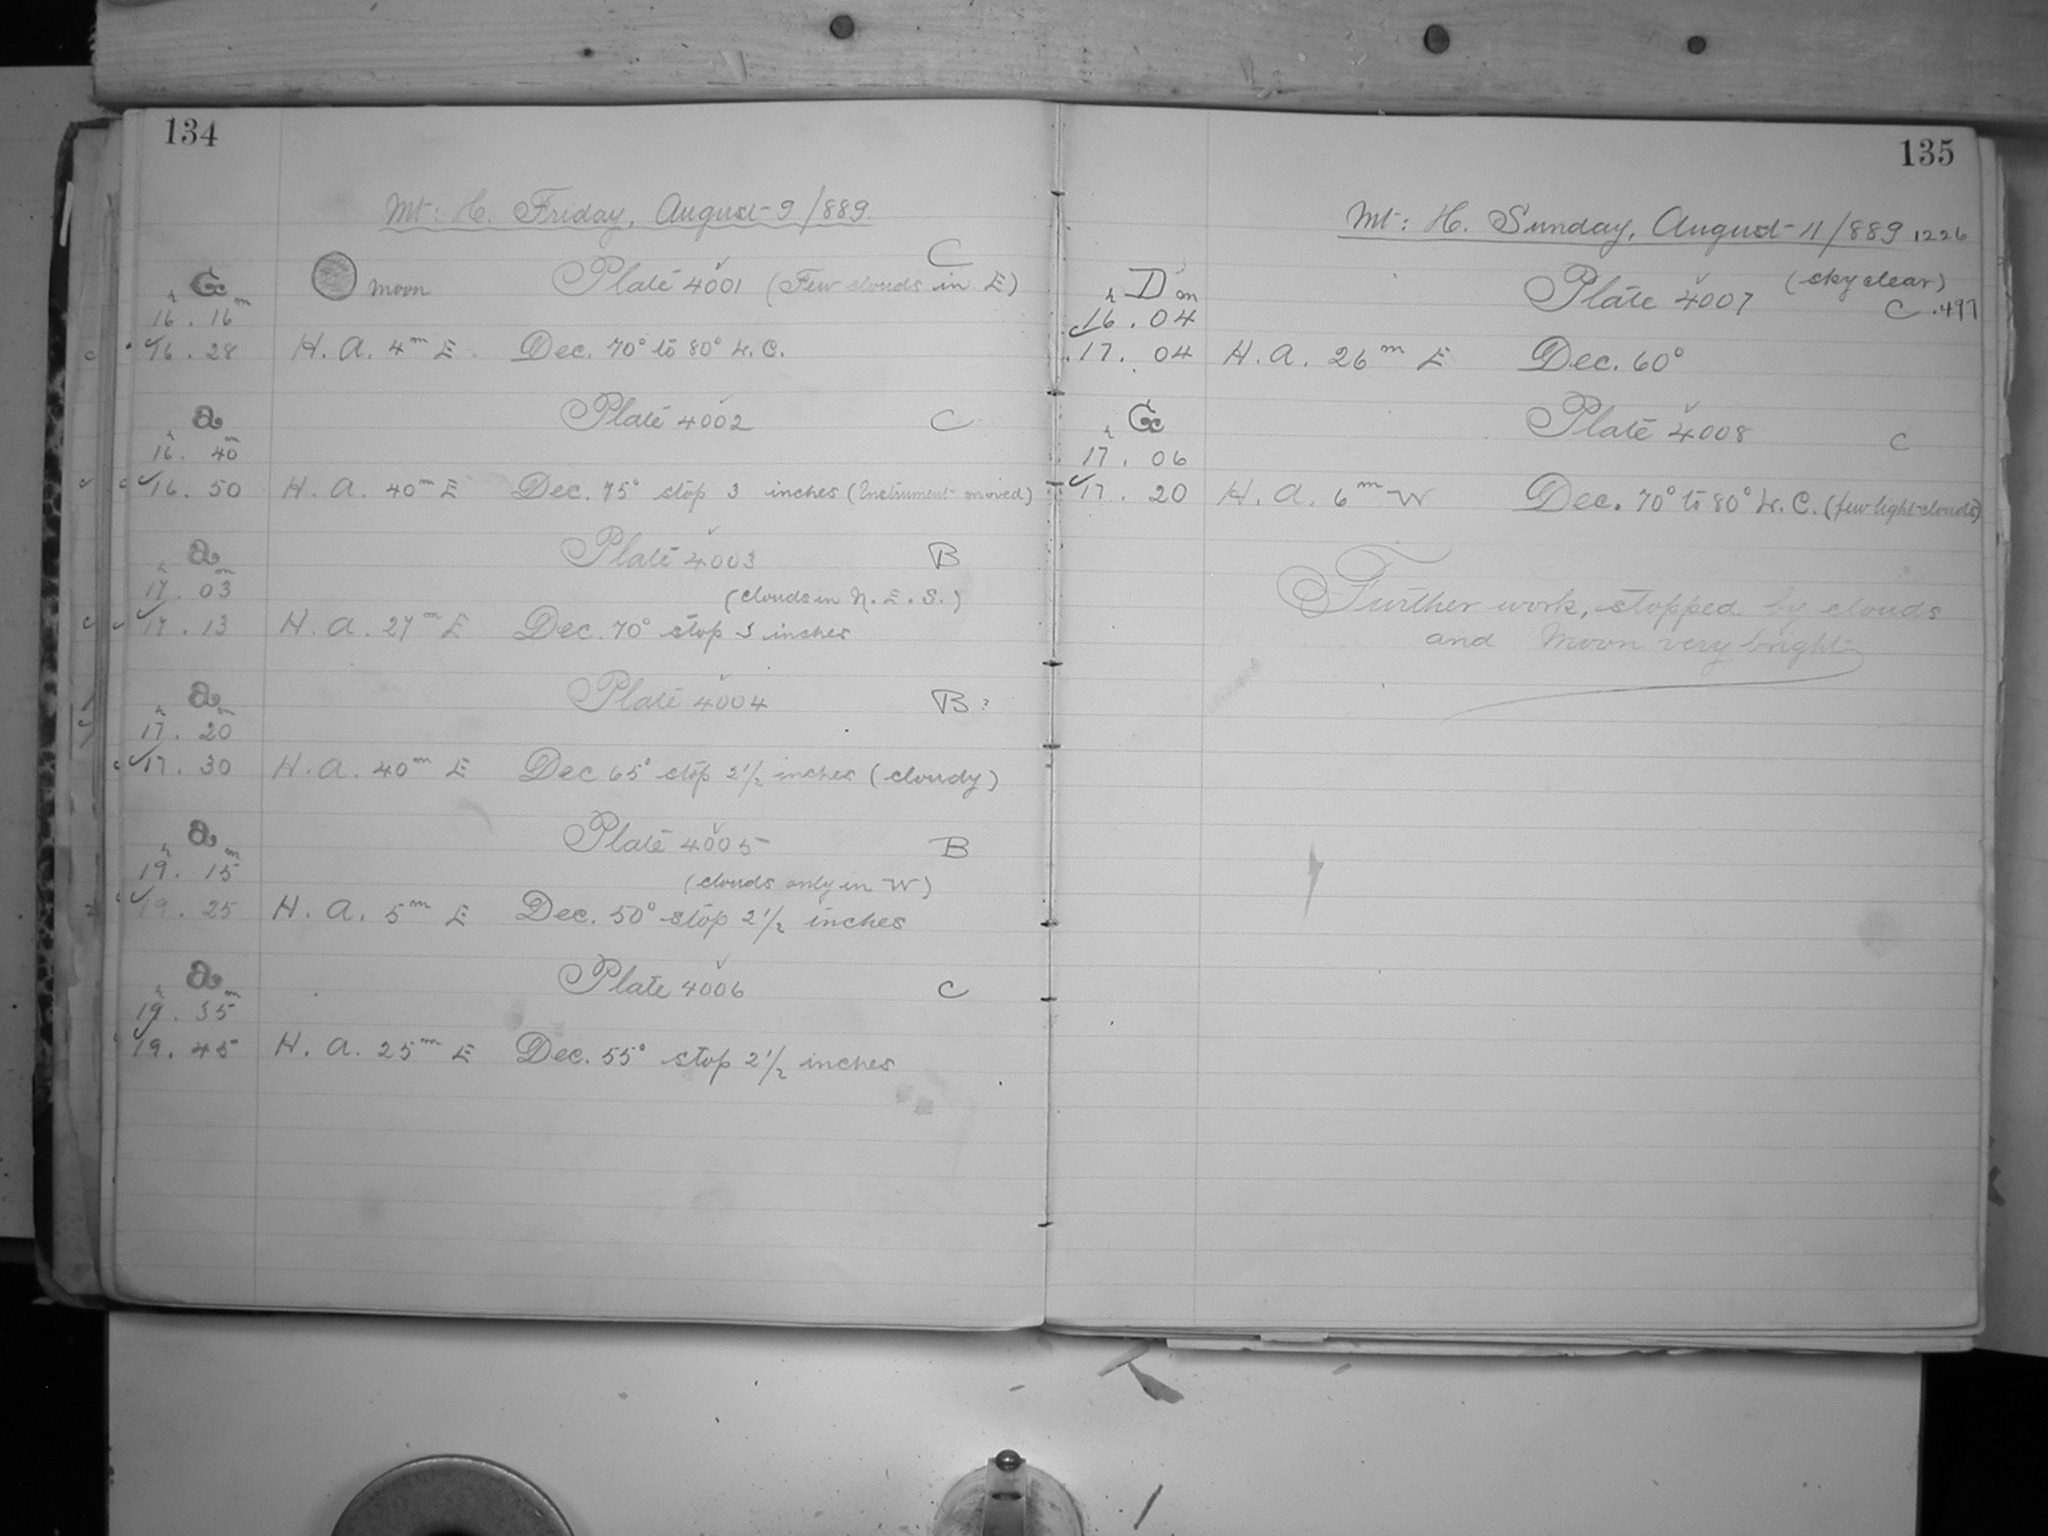 134
Mt: H. Friday, August 9/889.
C
G moon Plate 4001 (Few clouds in E)
h m
16. 16
16. 28 H. A. 4m E Dec. 70° to 80° L. C.
a Plate 4002 C
h m
16. 40
16. 50 H. A. 40m E Dec. 75° stop 3 inches (Instrument moved)
a Plate 4003 B
h m
17. 03 (clouds in N. E. S.)
17. 13 H. A. 27m E Dec. 70° stop 3 inches
a Plate 4004 B?
h m
17. 20
17. 30 H. A. 40m E Dec 65° stop 2 1/2 inches (cloudy)
a Plate 4005 B
h m
19. 15 (clouds only in W)
19. 25 H. A. 5m E Dec. 50° stop 2 1/2 inches
a Plate 4006 C
h m
19. 35
19. 45 H. A. 25m E Dec. 55° stop 2 1/2 inches
135
Mt: H. Sunday, August 11/889 1226
D Plate 4007 (sky clear)
h m
16. 04 C .497
17. 04 H. A. 26m E Dec. 60°
G Plate 4008 C
h
17. 06
17. 20 H. A. 6m W Dec. 70° to 80° L. C. (few light clouds)
Further work, stopped by clouds
and Moon very bright